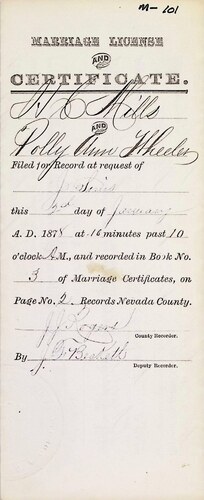 M-101
MARRIAGE LICENSE
AND
CERTIFICATE.
W E Mills
AND
Polly Ann Wheeler
Filed for Record at request of
this 3rd day of January
A. D. 1878 at 16 minutes past 10
o'clock A M., and recorded in Book No.
3 of Marriage Certificates, on
Page No. 2 Records Nevada County.
J J Rogers
County Recorder.
By J F Beckett
Deputy Recorder.